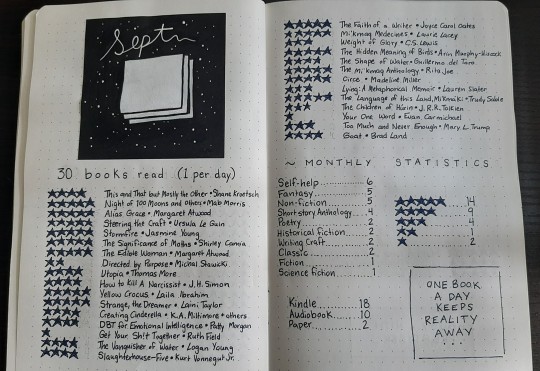 Septm
30 books read (1 per day)
This and That but Mostly the Other • Shane Kroetsch
Night of 100 Moons and Others • Mab Morris
Alias Grace • Margaret Atwood
Steering the Craft • Ursula Le Guin
Stormfire • Jasmine Young
The Significance of Moths • Shirley Camia
The Edible Woman • Margaret Atwood
Directed by Purpose • Michal Stawicki
Utopia • Thomas More
How to Kill A Narcissist • J.H. Simon
Yellow Crocus • Laila Ibrahim
Strange, the Dreamer • Laini Taylor
Creating Cinderella • K.A. Millimore + others
DBT for Emotional Intelligence • Patty Morgan
Get Your Sh!t Together • Ruth Field
The Vanquisher of Water • Logan Young
Slaughterhouse-Five • Kurt Vonnegut Jr.
The Faith of a Writer • Joyce Carol Oates
Mi'kmaq Medecines • Laurie Lacey
Weight of Glory • C.S. Lewis
The Hidden Meaning of Birds • Arin Murphy-Hiscock
The Shape of Water • Guillermo del Toro
The Mi'kmaq Anthology • Rita Joe
Circe • Madeline Miller
Lying: A Metaphorical Memoir • Lauren Slater
The Language of this Land, Mi'kma'ki • Trudy Sable
The Children of Húrin • J.R.R. Tolkien
Your One Word • Evan Carmichael
Too Much and Never Enough • Mary L. Trump
Goat • Brad Land
~ MONTHLY STATISTICS
Self-help............6
Fantasy............5
Non-fiction............5
Short story Anthology....4
Poetry............2
Historical fiction......2
Writing Craft............2
Classic............2
Fiction............1
Science fiction............1
14
9
4
1
2
Kindle............18
Audiobook............10
Paper............2
ONE BOOK
A DAY
KEEPS
REALITY
AWAY
...